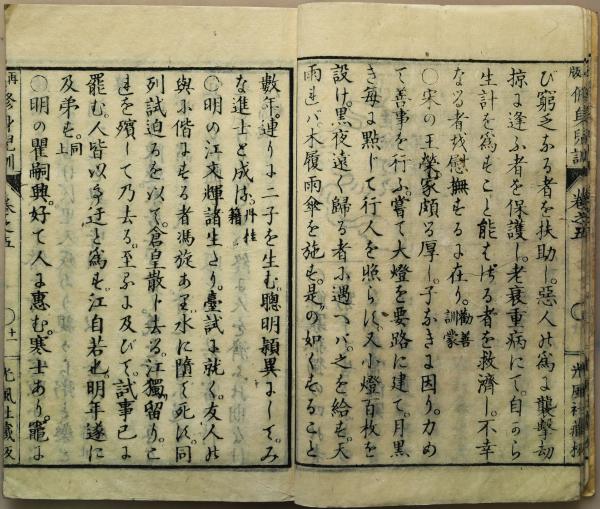 び窮乏なる者を扶助し。惡人の爲に襲擊劫
掠に逢ふ者を保護し。老衰重病にて。自から
生計を爲すこと能はざる者を救濟し。不幸
なる者を慰撫するに在り。勸善訓蒙
〇宋の王榮。家頗る厚し。子なきに因り。力め
て善事を行ふ。嘗て大燈を要路に建て。月黒
き每に點じて行人を照らす。又小燈百枚を
設け。黑夜遠く歸る者に遇へバ。之を給す。天
雨れバ。木履雨傘を施す。是の如くすること
數年。連りに二子を生む。聰明穎異にして。み
な進士と成る。丹桂籍
〇明の江文輝諸生たり。臺試に就く。友人の
與に偕にする者馮旋あり。水に墮て死す。同
列試迫るを以て。倉皇散じ去る。江獨留り。こ
れを殯して乃去る。至るに及びて。試事已に
罷む。人皆以て迂と爲す。江自若也。明年遂に
及弟す。同上
〇明の瞿嗣興。好て人に惠む。寒士あり。竈に
再 修身兒訓 卷之五 〇 十一 光風社藏板
版 修身兒訓 卷之五 光風社藏板